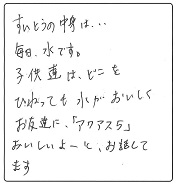 すいとうの中身は...
毎日、水です。
子供達は、どこを
ひねっても水がおいしく
お友達に、「アクアス5」
おいしいよーと、お話して
ます